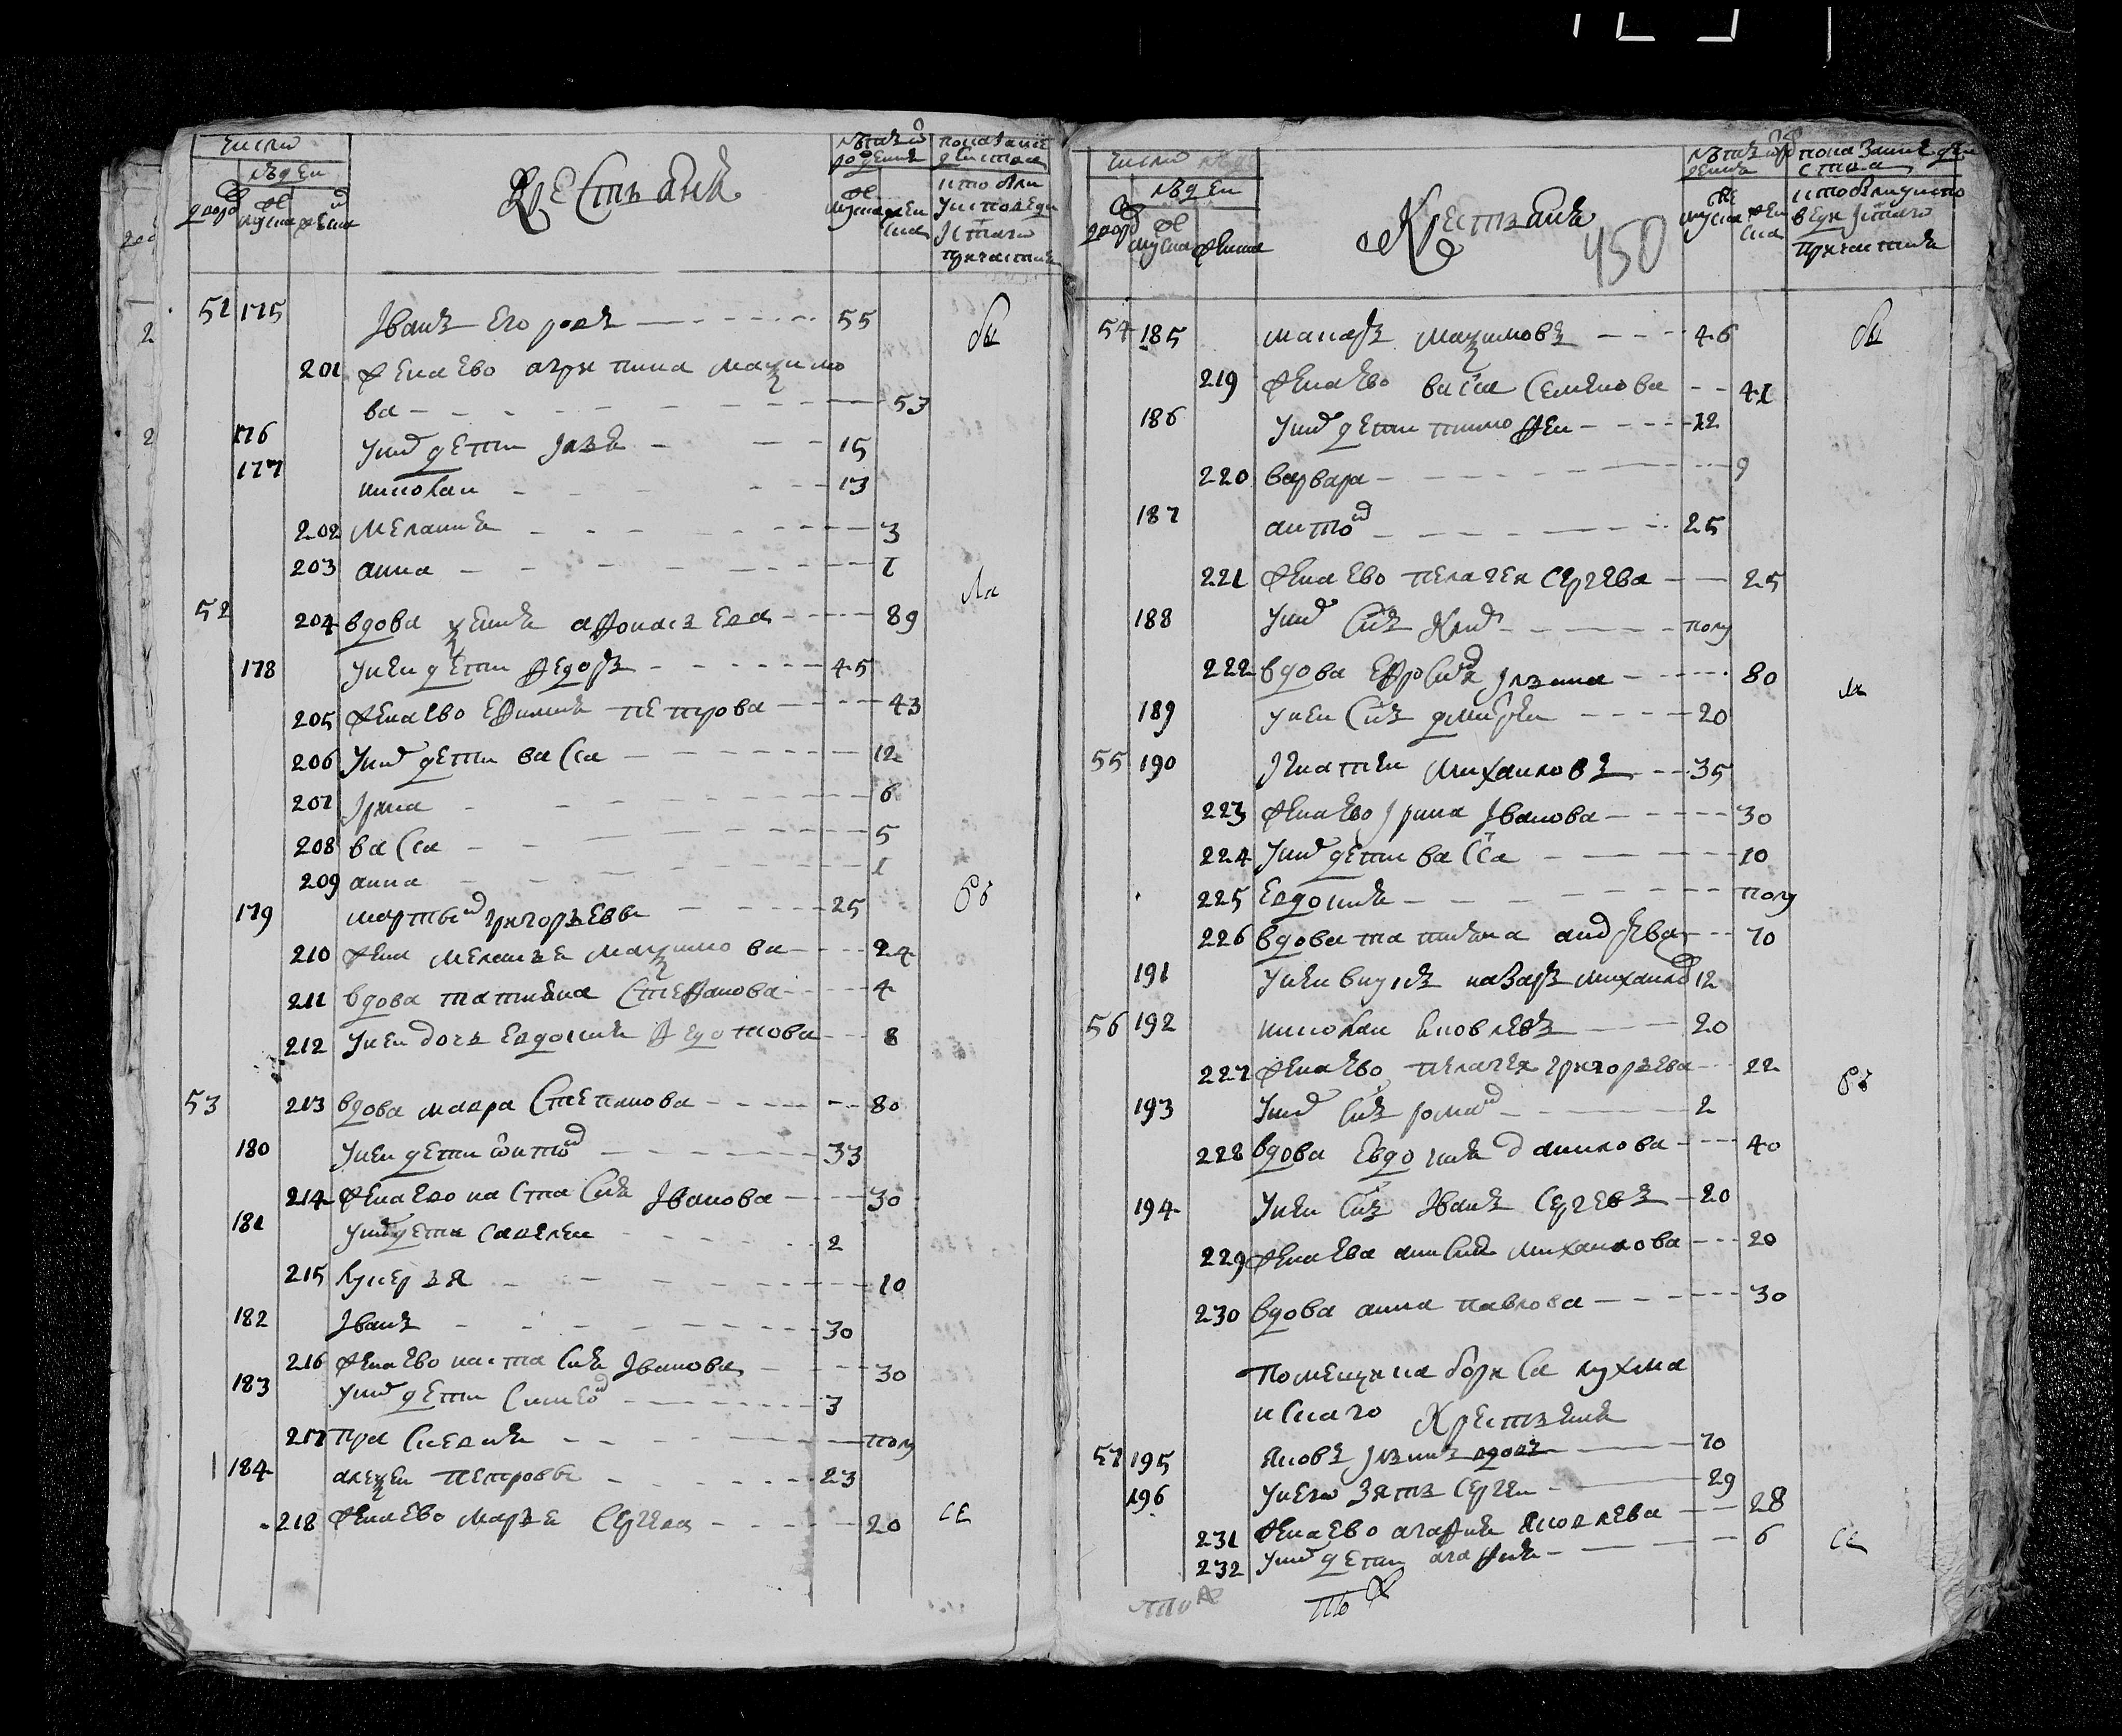 число
людеи
двор
муска
женска
Крестьянѣ
лѣта ѿ
рожения
муска
женска
показание
деиства
кто были
у исповеди
и с таго
причастия
51 175 Іванъ Егоровъ 55 бы
201 жена ево агрипина максимо
ва 53
176 у них дети Іаковъ 15
177 николаи 13
202 мелания 3
203 анна 1
ли
52 204 вдова ксения афонасьева 89
178 у неи дети федоръ 45
205 жена ево Ефимия петрова 43
206 у них дети васса 12
207 Ірина 6
208 васса 5
209 анна 1
179 мартын григорьевъ 25
210 жена меланья максимова 24
211 вдова татияна стефанова 4
212 у неи дочь евдокия федотова 8
53 213 вдова мавра степанова 80
180 у неи дети антон 33
214 жена ево настасия Іванова 30
181 у них дети савелеи 2
215 лукерья 10
182 Іванъ 30
216 жена ево настасия Іванова 30
183 у них дети симеон 3
217 прасковия полу
184 алексеи петровъ 23
218 жена ево марья сергеева 20 се
число
людеи
двор
муска
женска
Крестьянѣ
450
муска
женска
показание деи
ства
кто были у испо
веди и с таго
причастия
54 185 макаръ максимовъ 46 бы
219 жена ево васса семенова 41
186 у них дети тимофеи 12
220 варвара 9
187 антон 25
221 жена ево пелагея сергева 25
188 у них сынъ полу
222 вдова Ефросиня 80 ли
189 у неи сынъ дмитреи 20
55 190 Ігнатеи михаиловъ 35
223 жена ево Ірина Іванова 30
224 у них дети васса 10
225 евдокия полу
226 вдова татияна андрева 70
191 у неи внукъ назаръ михаило 12
56 192 николаи яковлевъ 20
227 жена ево пелагея григорьева 22
193 у них сынъ роман 2
228 вдова Евдокия данилова 40
194 у неи сынъ Іванъ сергевъ 20
229 жена ева анисия михаилова 20
230 вдова анна павлова 30
помещика бориса кухма
искаго Крестьянѣ
57 195 яковъ вдовъ 70
196 у него зять сергеи 29
231 жена ево агафия яковлева 28
232 у них дети агафия 6 се